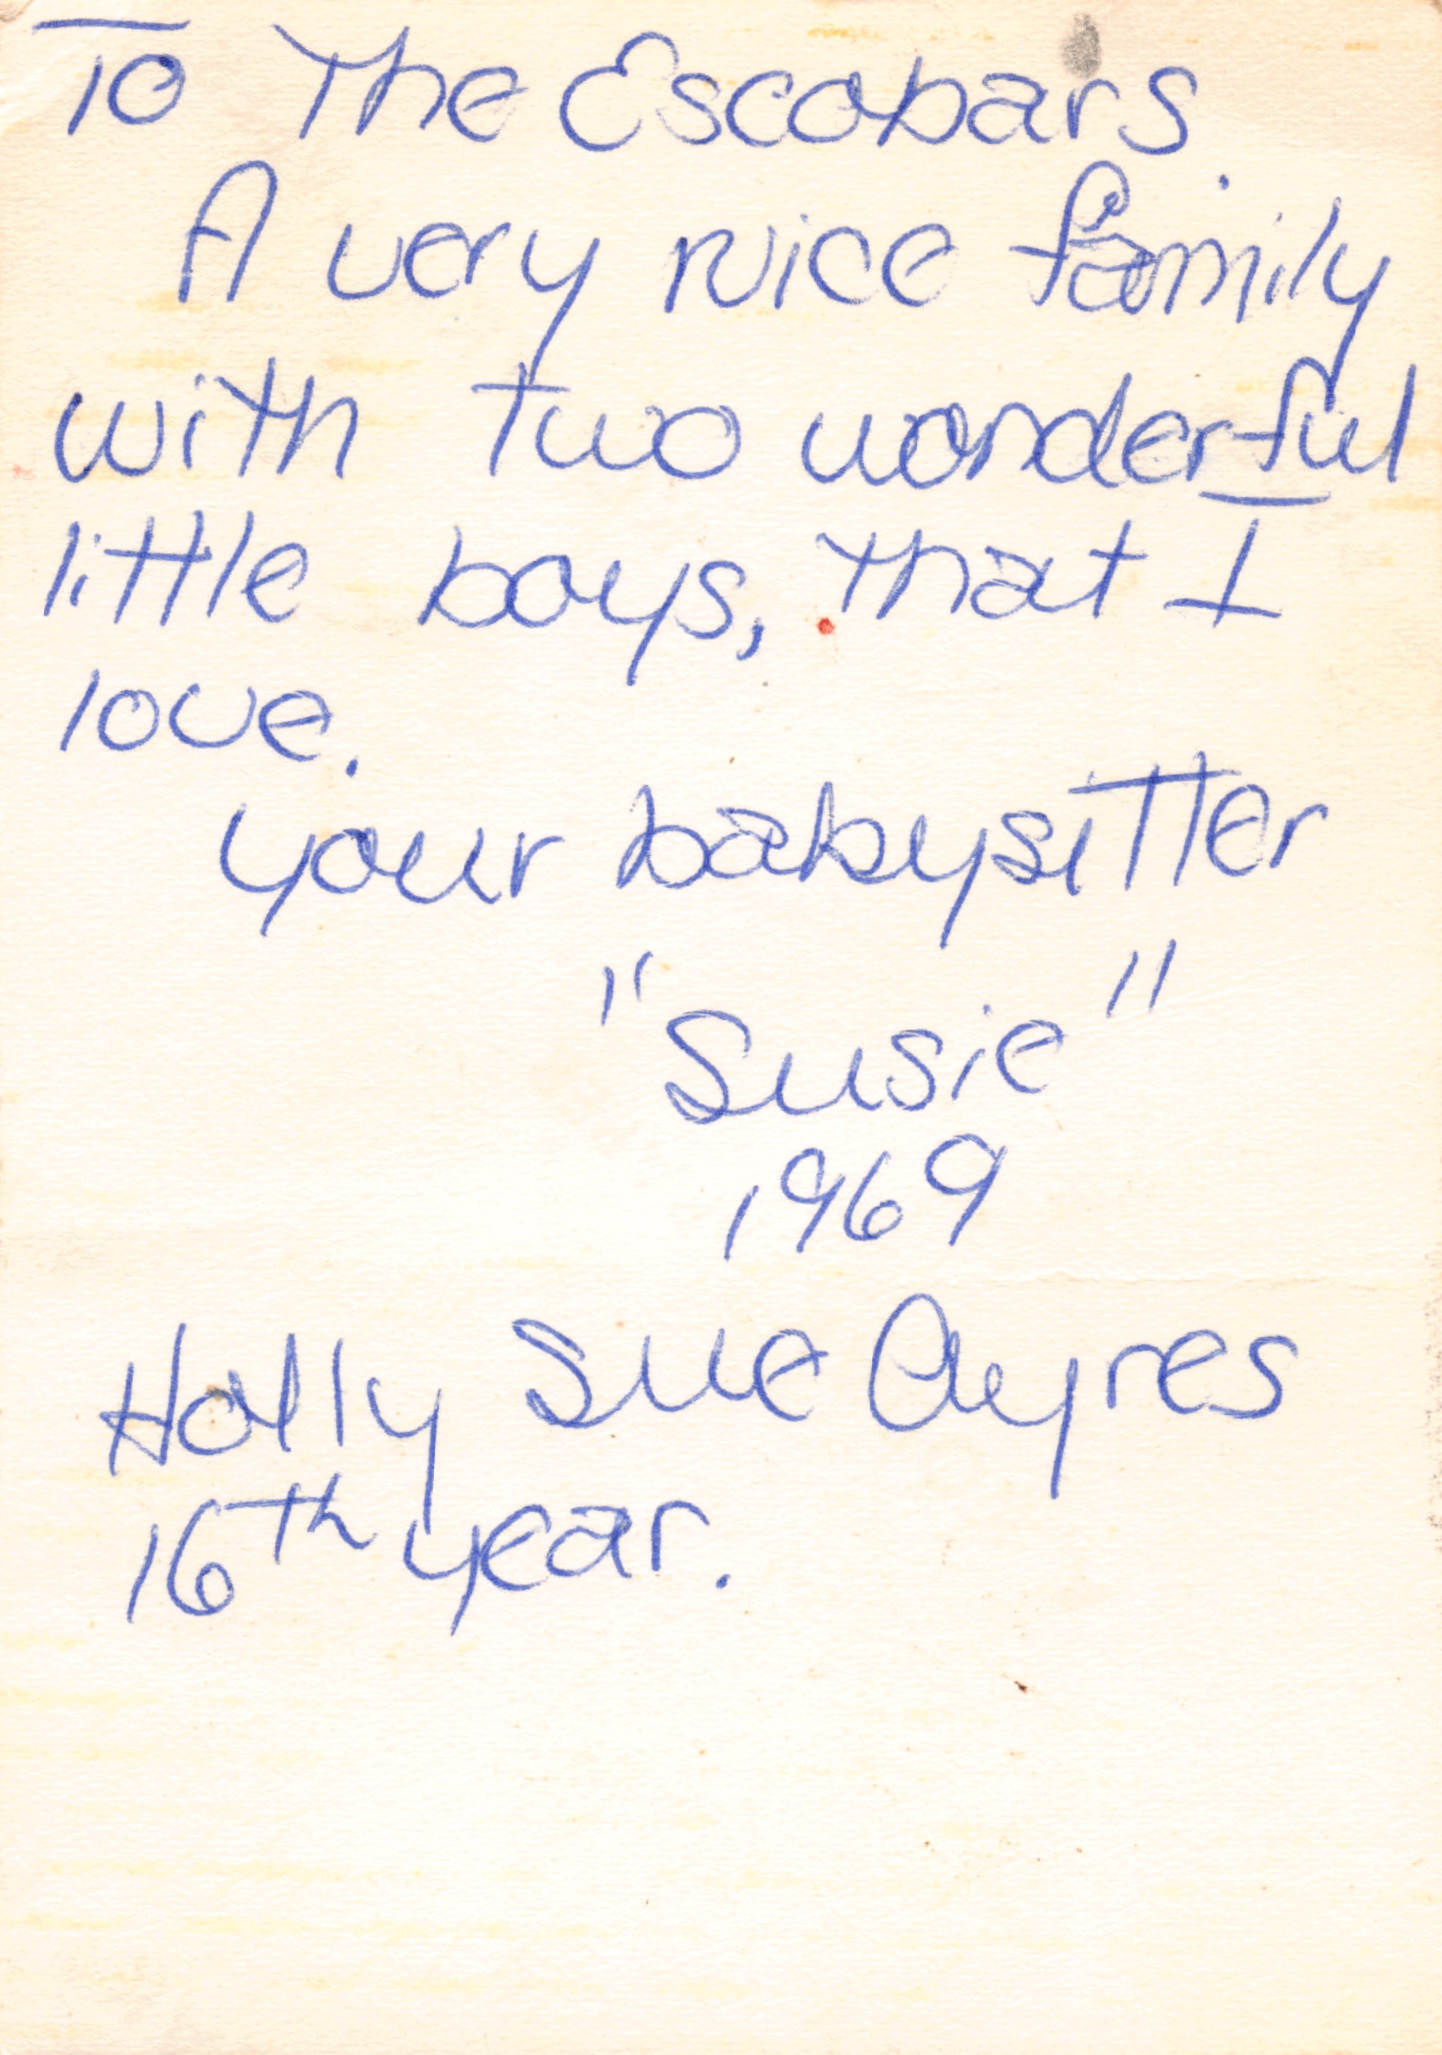 To The Escobars.
A very nice family
with two wonderful
little boys, that I
love.
your babysitter
"Susie"
1969
Holly Sue Ayres
16th year.